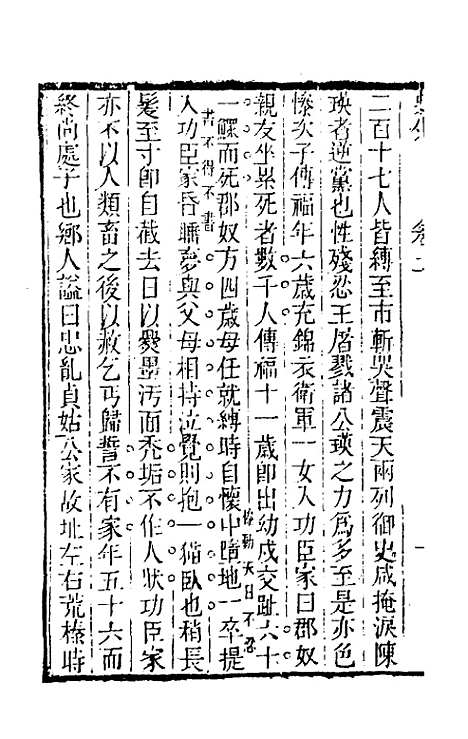 二百十七人皆縛至市斬哭聲震天兩列御史咸掩淚陳
瑛者逆黨也性殘忍王屠戮諸公瑛之力爲多至是亦色
慘次子傳福年六歲充錦衣衛軍一女入功臣家曰郡奴
親友坐累死者數千人傳福十一歲即出幼戍交趾六十
一鰥而死郡奴方四歲母任就縛時自懷中墮地一卒提
入功臣家昏瞶夢與父母相持泣覺則抱一猫臥也稍長
髮至寸卽自截去日以爨墨汚面禿垢不作人狀功臣家
亦不以人類畜之後以赦乞丐歸誓不有家年五十六而
終尚處子也鄉人謚曰忠亂貞姑公家故址左右荒榛時
天日不忍
書不得不書
卷二